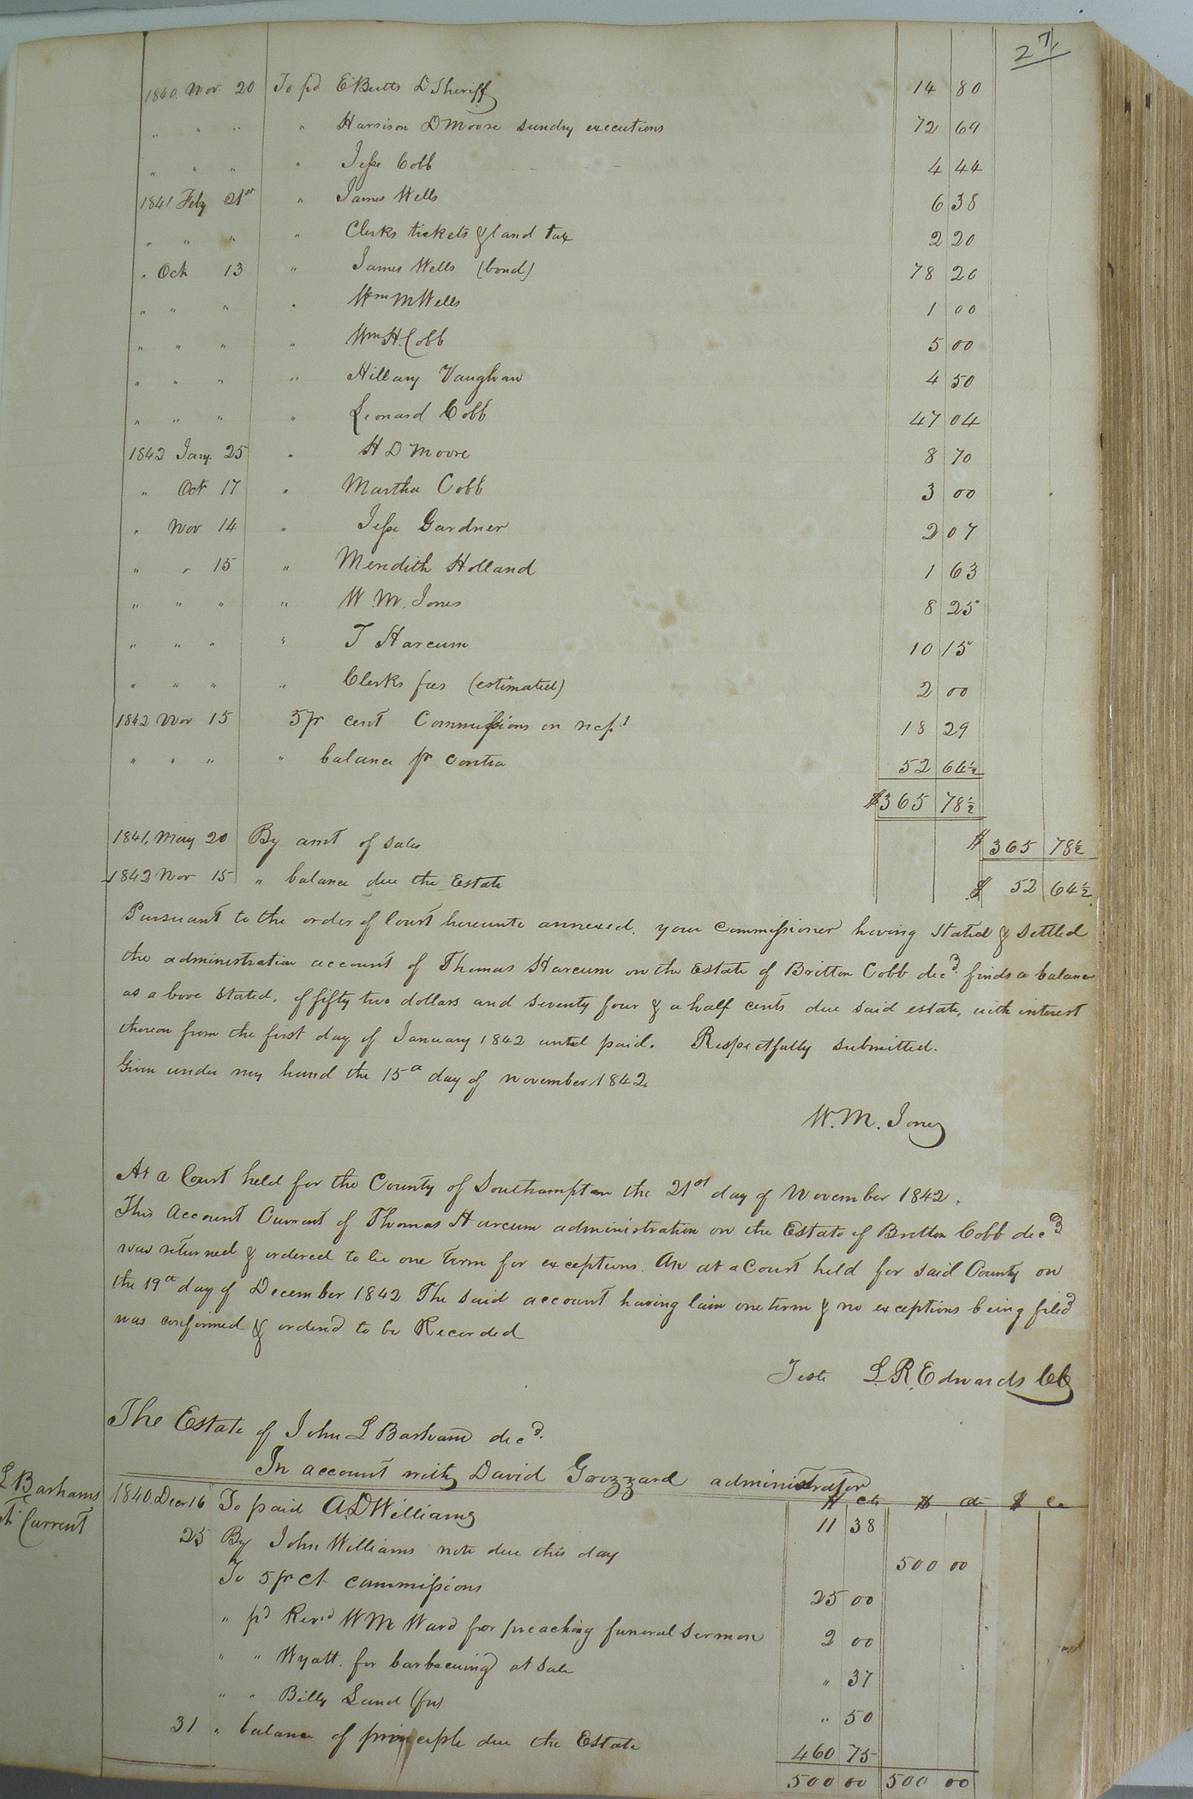 27
1840 Nov 20 To pd E Butts D Sheriff 14 80
" " " " Harrison D Moore sundry executions 72 69
" " " " Jesse Cobb 4 44
1841 Feby 21st " James Wells 6 38
" " " " Clerks tickets & land tax 2 20
" Oct 13 " James Wells (bond) 78 20
" " " " Wm M Wells 1 00
" " " " Wm H. Cobb 5 00
" " " " Hillary Vaughan 4 50
" " " " Leonard Cobb 47 04
1842 Jany 25 " H D Moore 8 70
" Oct 17 " Martha Cobb 3 00
" Nov 14 " Jesse Gardner 2 07
" " 15 " Meredith Holland 1 63
" " " " W. M. Jones 8 25
" " " " T Harcum 10 15
" " " " Clerks fees (estimated) 2 00
1842 Nov 15 5 pr cent Commissions on recpt 18 29
" " " " balance pr contra 52 64½
$365 78½
1841, May 20 By amt of sales $ 365 78½
1842 Nov 15 " balance due the Estate $ 52 64½
Pursuant to the order of Court hereunto annexed, your Commissioner having Stated & Settled
the administration account of Thomas Harcum on the Estate of Britton Cobb decd finds a balance
as above Stated, of fifty two dollars and Seventy four & a half cents due said estate, with interest
thereon from the first day of January 1842 until paid. Respectfully submitted.
Given under my hand the 15th day of November 1842
W. M. Jones
At a Court held for the County of Southampton the 21st day of November 1842.
This Account Current of Thomas Harcum administration on the Estate of Britton Cobb decd
was returned & ordered to lie one Term for exceptions. An at a Court held for said County on
the 19th day of December 1842 The said account having lain one term & no exceptions being filed
was confirmed & ordered to be Recorded
Teste L. R. Edwards CC
The Estate of John L Barham decd.
In account with David Grizzard administrator
L Barhams
Current
$ cts $ cts $ Cs
1840. Decr 16 To paid A. D Williams 11 38
25 By John Williams note due this day 500 00
To 5 pr ct commissions 25 00
" pd Revd WM Ward for preaching funeral Sermon 2 00
" " Wyatt for barbecuing at Sale " 37
" " Billy Land " 50
31 " balance of principle due the Estate 460 75
500 00 500 00